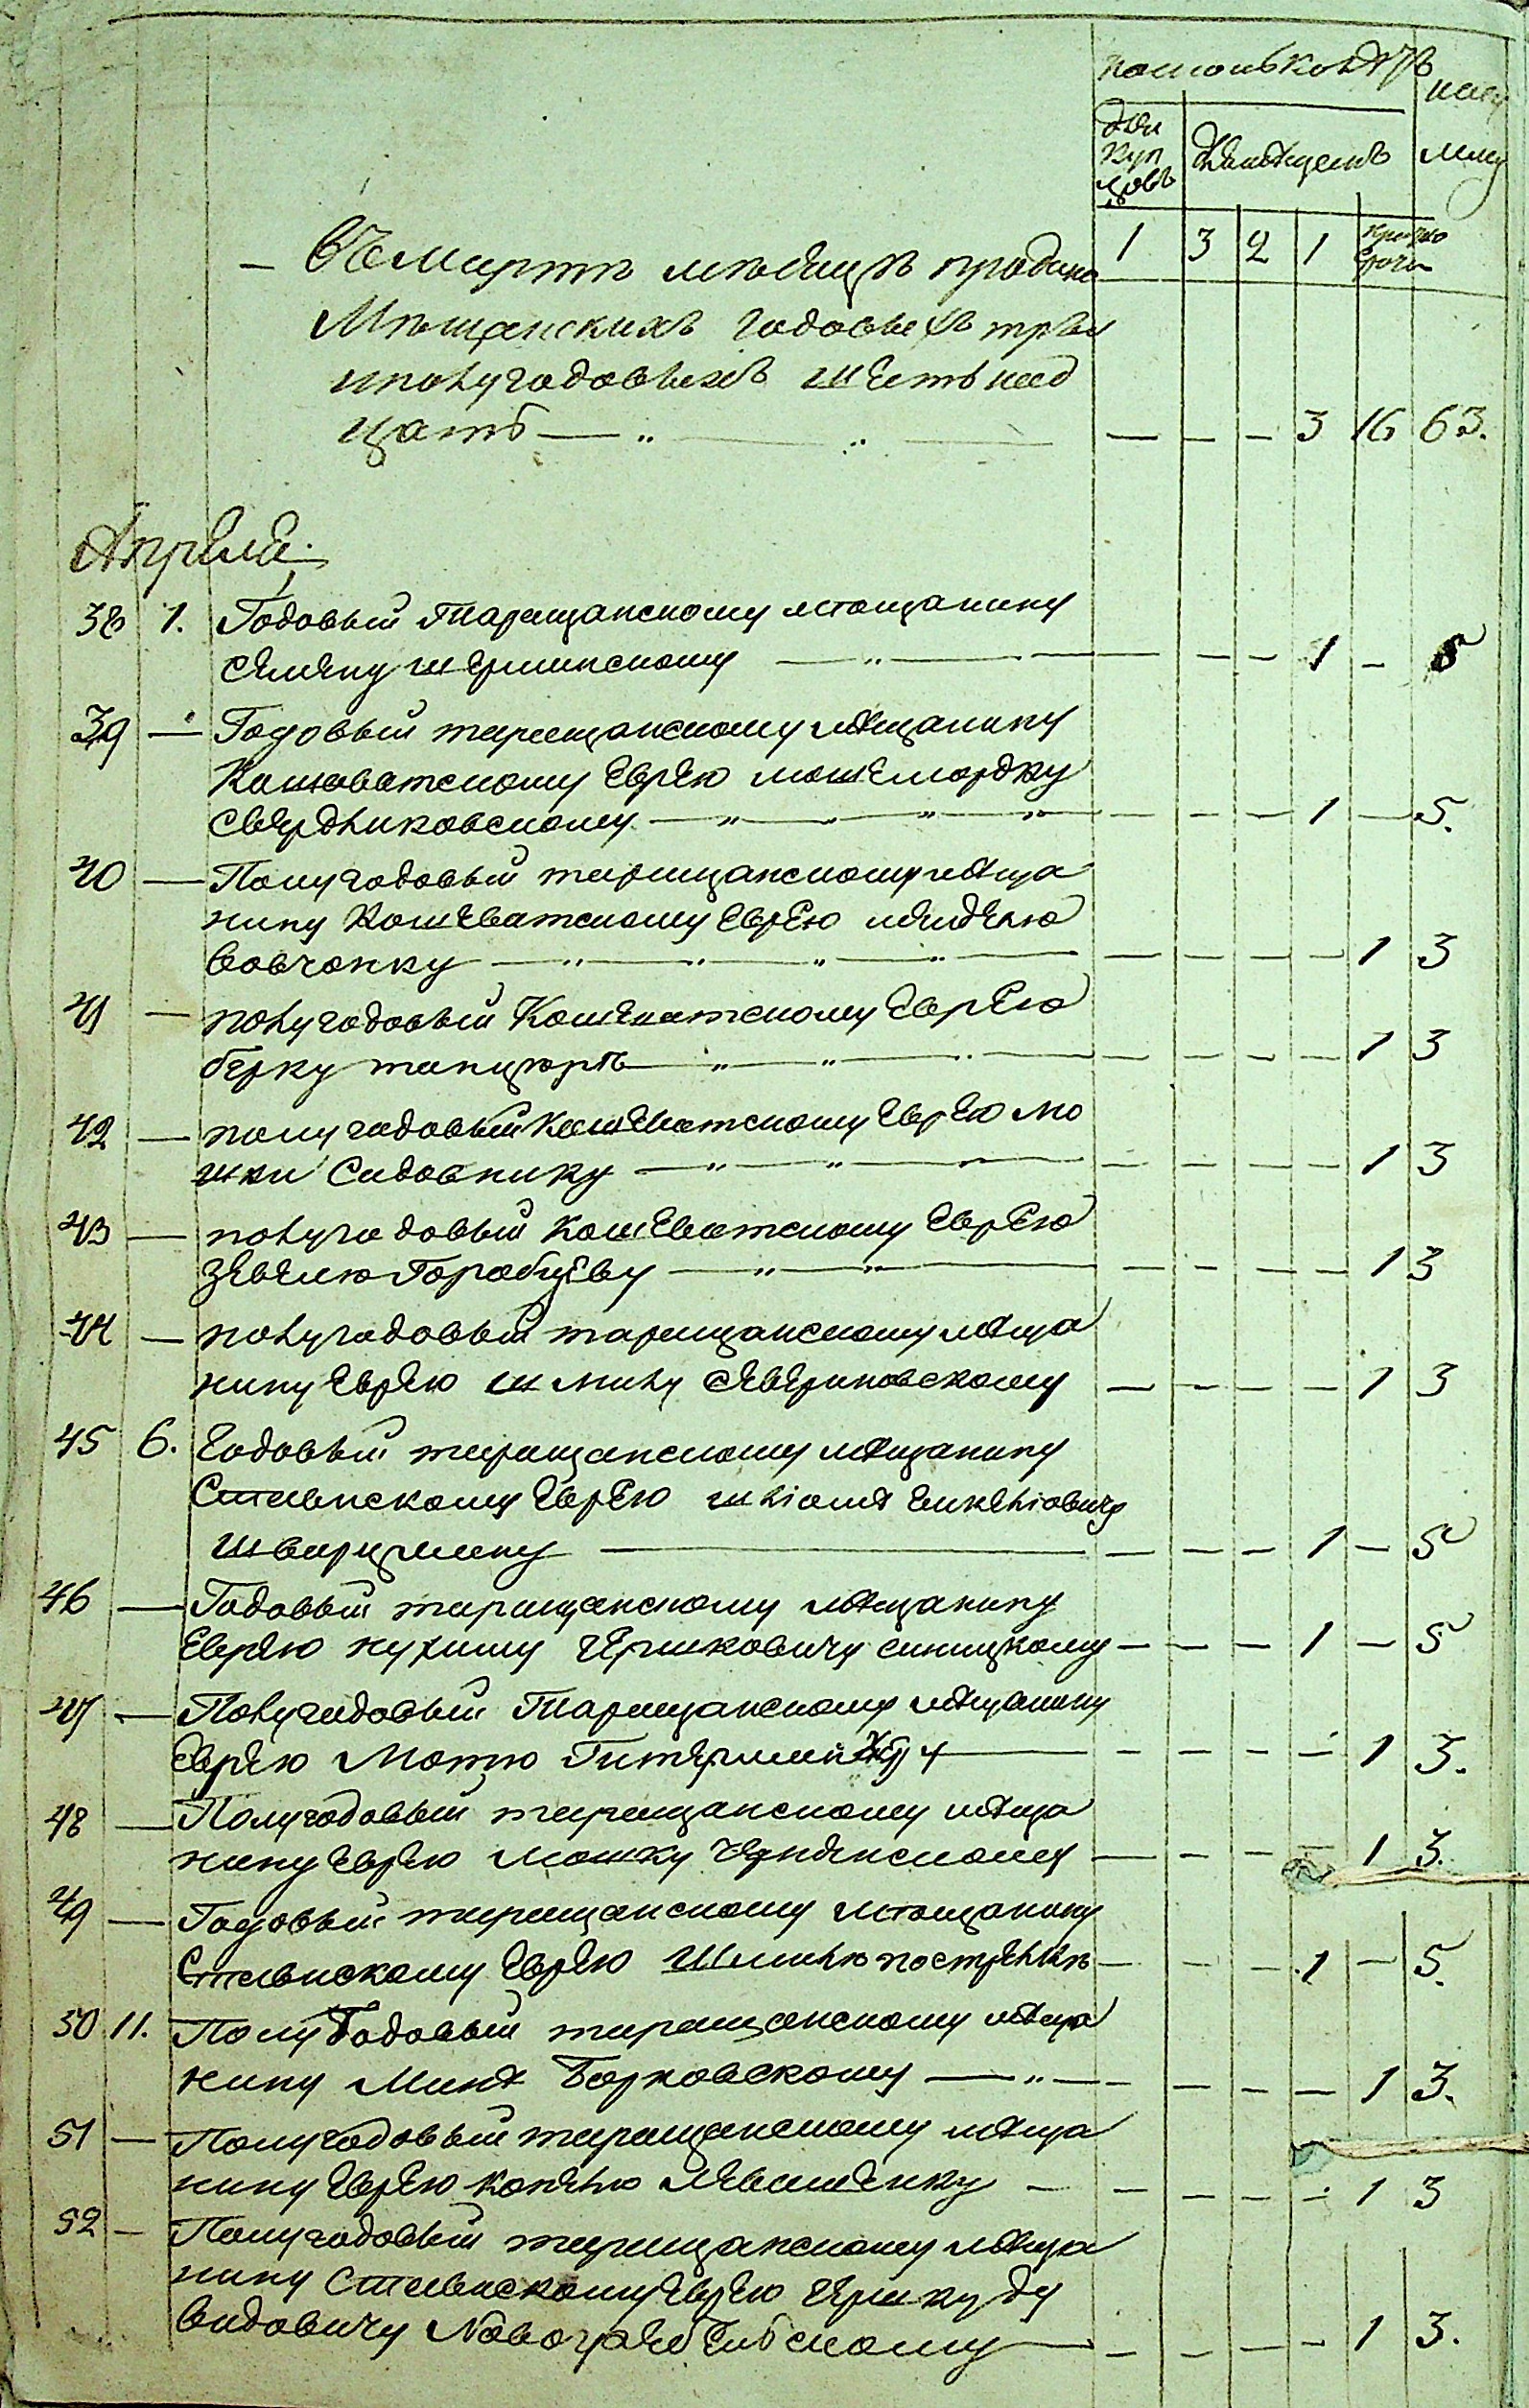 Посколько лѣтъ
на су
мму
для
куп
цовъ
Для мѣщанъ
1 3 2 1 кратко срочн
— Въ Мартѣ мѣсяцѣ продано
Мѣщанскихъ годовыхъ три
и полугодовыхъ шестьнад
цать — — — — — 3 16 63.
Апрѣля.
38 1. Годовый Таращанскому мѣщанину
Семену Шершинскому — — — — 1 — 5
39 — Годовый таращанскому мѣщанину
Кашоватскому Еврею Мошемордку
Свердликовскому — — — — 1 — 5.
40 — Полугодовый таращанскому мѣща
нину Кошеватскому Еврею
Вовчонку — — — — — 1 3
41 — полугодовый Кошеватскому Еврею
Берку Танцюрѣ — — — — — 1 3
42 — полугодовый Кошеватскому Еврею Мо
шки Садовнику — — — — — 1 3
43 — полугодовый Кошеватскому Еврею
Зевелю Горобцеву — — — — — 1 3
44 — полугодовый таращанскому мѣща
нину Еврею Шмилу Севериновскому — — — — 1 3
45 6. Годовый таращанскому мѣщанину
Ставискому Еврею Шліомѣ
Шварцману — — — — 1 — 5
46 — Годовый таращанскому мѣщанину
Еврею Нухиму Гершковичу Синицкому — — — 1 — 5
47 — Полугодовый Таращанскому мѣщанину
Еврею Мотю — — — — 1 3.
48 — Полугодовый таращанскому мѣща
нину Еврею Мошку Чернянскому — — — — 1 3.
49 — Годовый таращанскому мѣщанину
Ставискому Еврею Шмилю — — — 1 — 5.
50 11. Полугодовый таращанскому мѣща
нину Минѣ Борковскому — — — — 1 3.
51 — Полугодовый таращанскому мѣща
нину Еврею Копелю — — — — 1 3
52 — Полугодовый таращанскому мѣща
нину Ставискому Еврею Гершку Да
видовичу Новогребельскому — — — — 1 3.